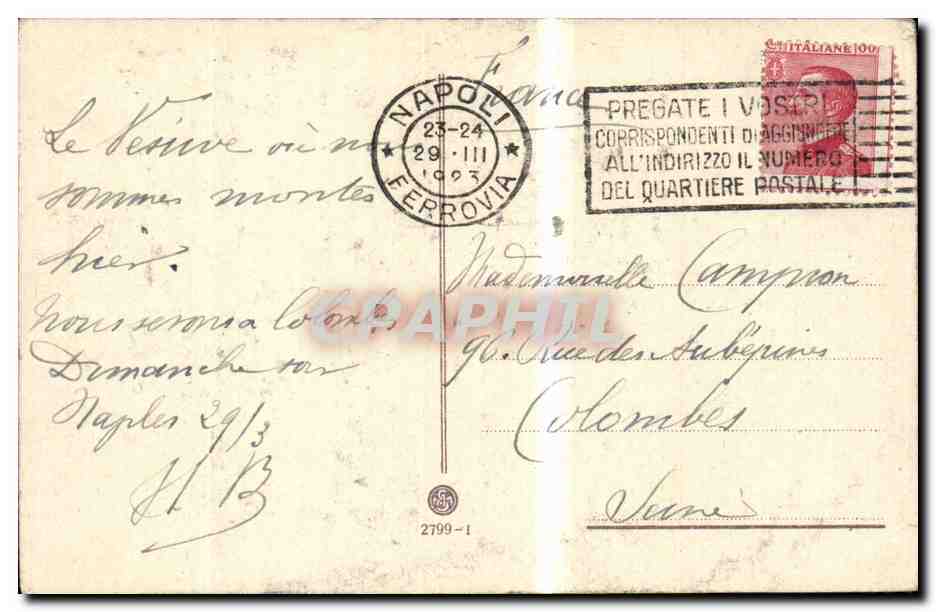 Le Vésuve où nous
sommes montés
hier.
Nous serons a Colombes
Dimanche soir
Naples 29/3
H B
France
NAPOLI
23-24
29 · III
1923
FERROVIA
PREGATE I VOSTRI
CORRISPONDENTI DI AGGIUNGERE
ALL'INDIRIZZO IL NUMERO
DEL QUARTIERE POSTALE
ITALIANE
Mademoiselle Campion
96. Rue des Aubépines
Colombes
Seine
CPAPHIL
2799-I